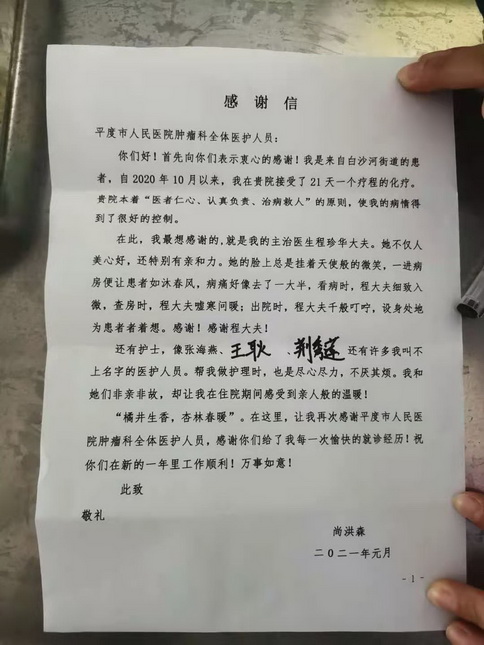 感谢信
平度市人民医院肿瘤科全体医护人员：
你们好！首先向你们表示衷心的感谢！我是来自白沙河街道的患
者，自2020年10月以来，我在贵院接受了21天一个疗程的化疗。
贵院本着“医者仁心、认真负责、治病救人”的原则，使我的病情得
到了很好的控制。
在此，我最想感谢的，就是我的主治医生程珍华大夫。她不仅人
美心好，还特别有亲和力。她的脸上总是挂着天使般的微笑，一进病
房便让患者如沐春风，病痛好像去了一大半，看病时，程大夫细致入
微，查房时，程大夫嘘寒问暖；出院时，程大夫千般叮咛，设身处地
为患者者着想。感谢！感谢程大夫！
还有护士，像张海燕、王耿、荆 还有许多我叫不
上名字的医护人员。帮我做护理时，也是尽心尽力，不厌其烦。我和
她们非亲非故，却让我在住院期间感受到亲人般的温暖！
“橘井生香，杏林春暖”。在这里，让我再次感谢平度市人民医
院肿瘤科全体医护人员，感谢你们给了我每一次愉快的就诊经历！祝
你们在新的一年里工作顺利！万事如意！
此致
敬礼
尚洪森
二〇二一年元月
- 1 -